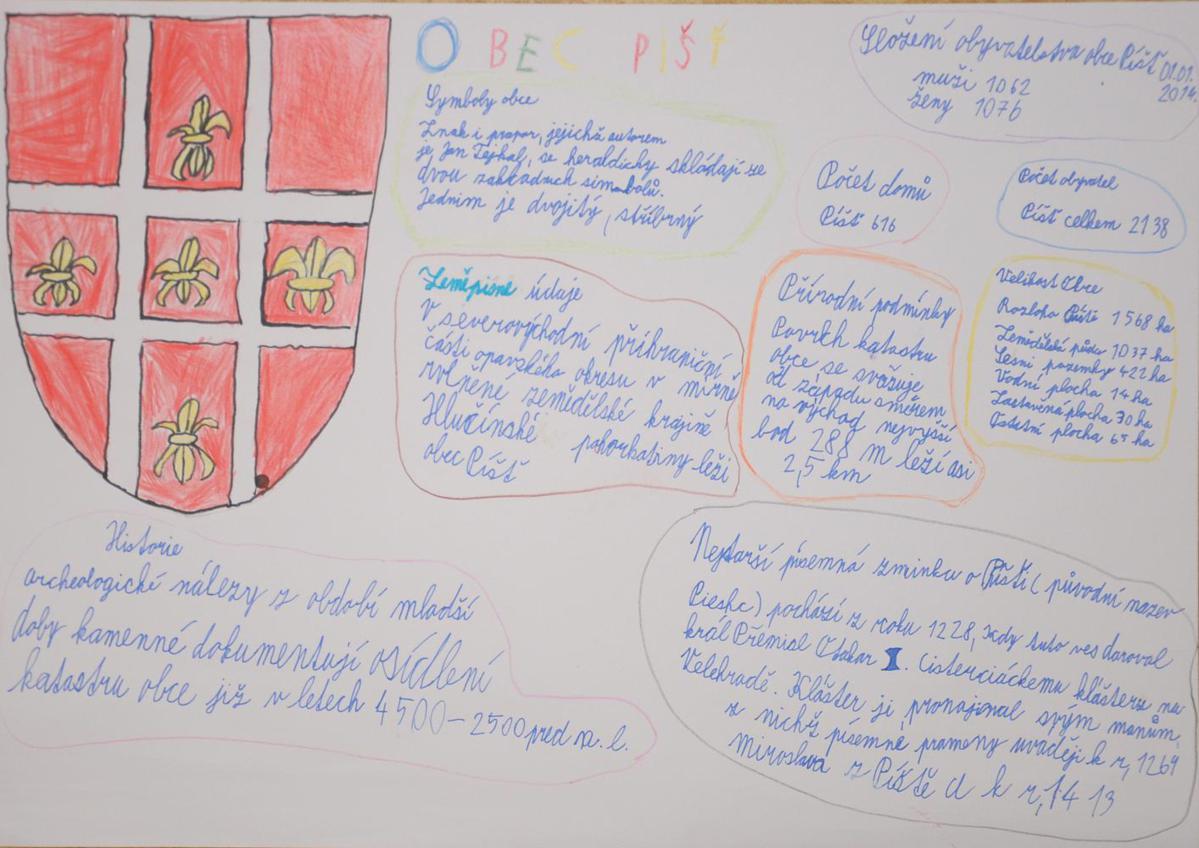 OBEC PÍŠŤ
Složení obyvatelstva obce Píšť 01.01.
2014
muži 1062
ženy 1076
Symboly obce
Znak i prapor, jejichž autorem
je Jan Tejkal, se heraldicky skládají ze
dvou základních simbolů.
Jedním je dvojitý, stříbrný
Počet domů
Píšť 616
Počet obyvatel
Píšť celkem 2138
Zeměpisne údaje
v severovýchodní příhraniční
části opavského okresu v mírně
zvlněné zemědělské krajině
Hlučínské pahorkatiny leží
obec Píšť
Přírodní podmínky
Povrch katastru
obce se svažuje
od západu směrem
na východ nejvyšší
bod 288 m leží asi
2,5 km
Velikost Obce
Rozloha Píště 1568 ha
Zemědělská půda 1037 ha
Lesní pozemky 422 ha
Vodní plocha 14 ha
Zastavěná plocha 30 ha
Ostatní plocha 65 ha
Historie
archeologické nálezy z období mladší
doby kamenné dokumentují osídlení
katastru obce již v letech 4500-2500 pred n. l.
Nejstarší písemná zminka o Píšti ( původní nazev
Pieshc) pochází z roku 1228, kdy tuto ves daroval
král Přemisl Otakar I. Cisterciáckemu klášteru na
Velehradě. Klášter ji pronajonal svým manům,
z nichž písemné prameny uvádějí k r, 1269
Miroslava z Píště a k r, 1413